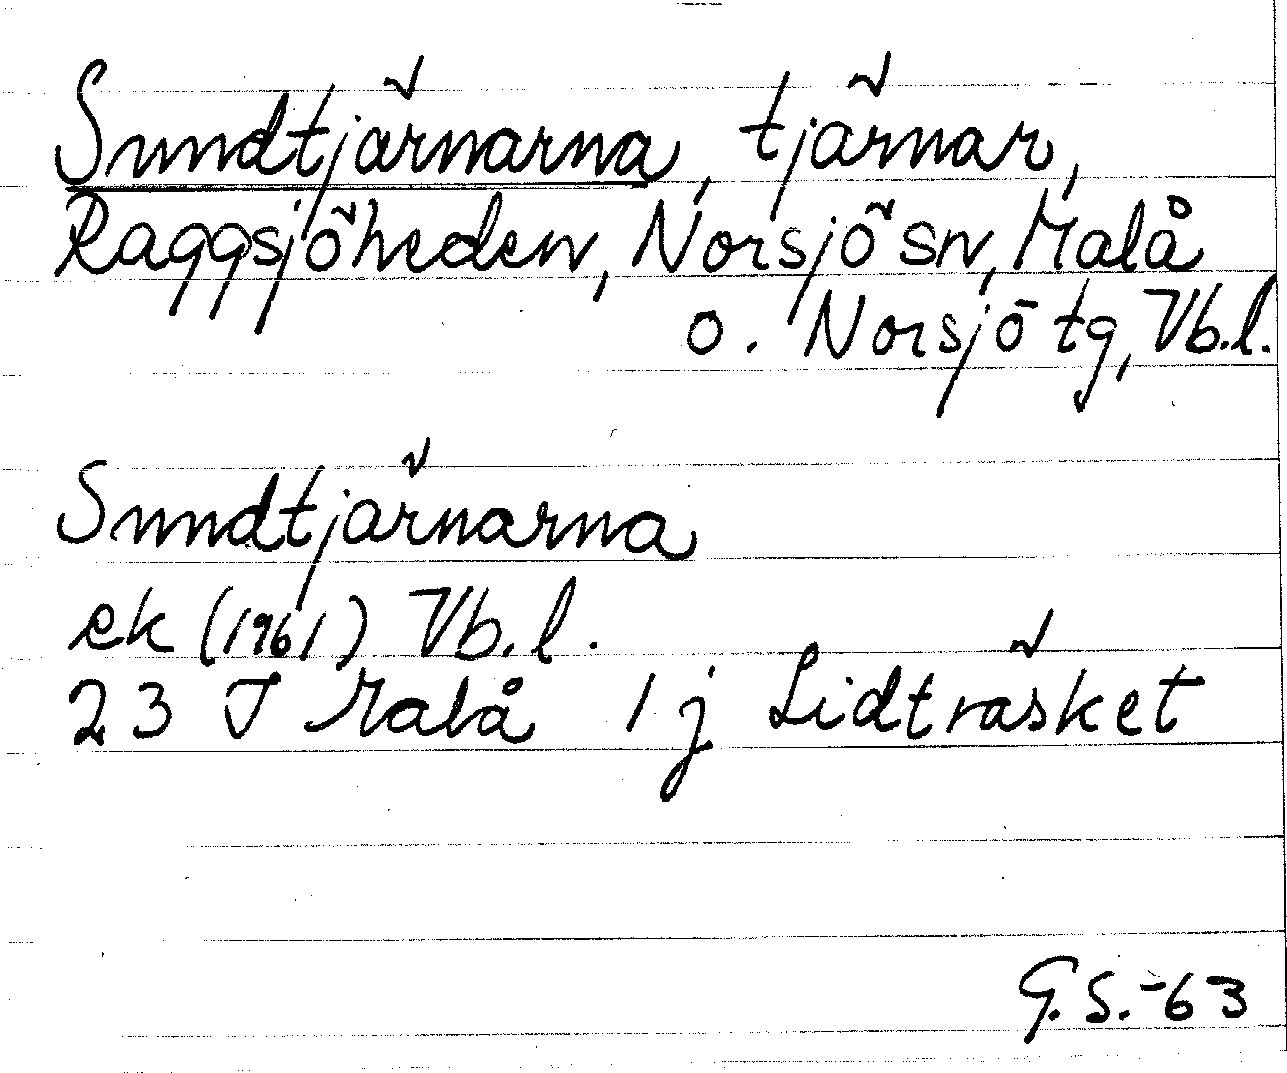 Sundtjärnarna, tjärnar,
Raggsjöheden, Norsjö sn, Malå
o. Norsjö tg, Vb.l.
Sundtjärnarna
ek (1961) Vb.l.
23 J Malå 1 j Lidträsket
G.S.-63